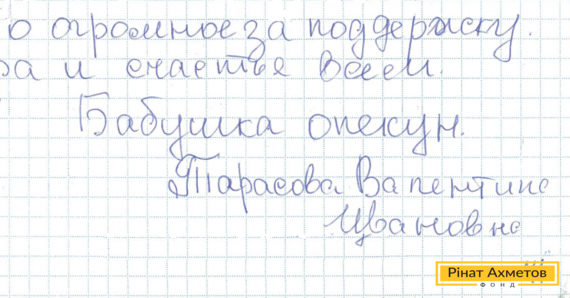 о огромное за поддержку.
ра и счастье всем.
Бабушка опекун.
Тарасова Валентина
Ивановна
Рінат Ахметов
ФОНД